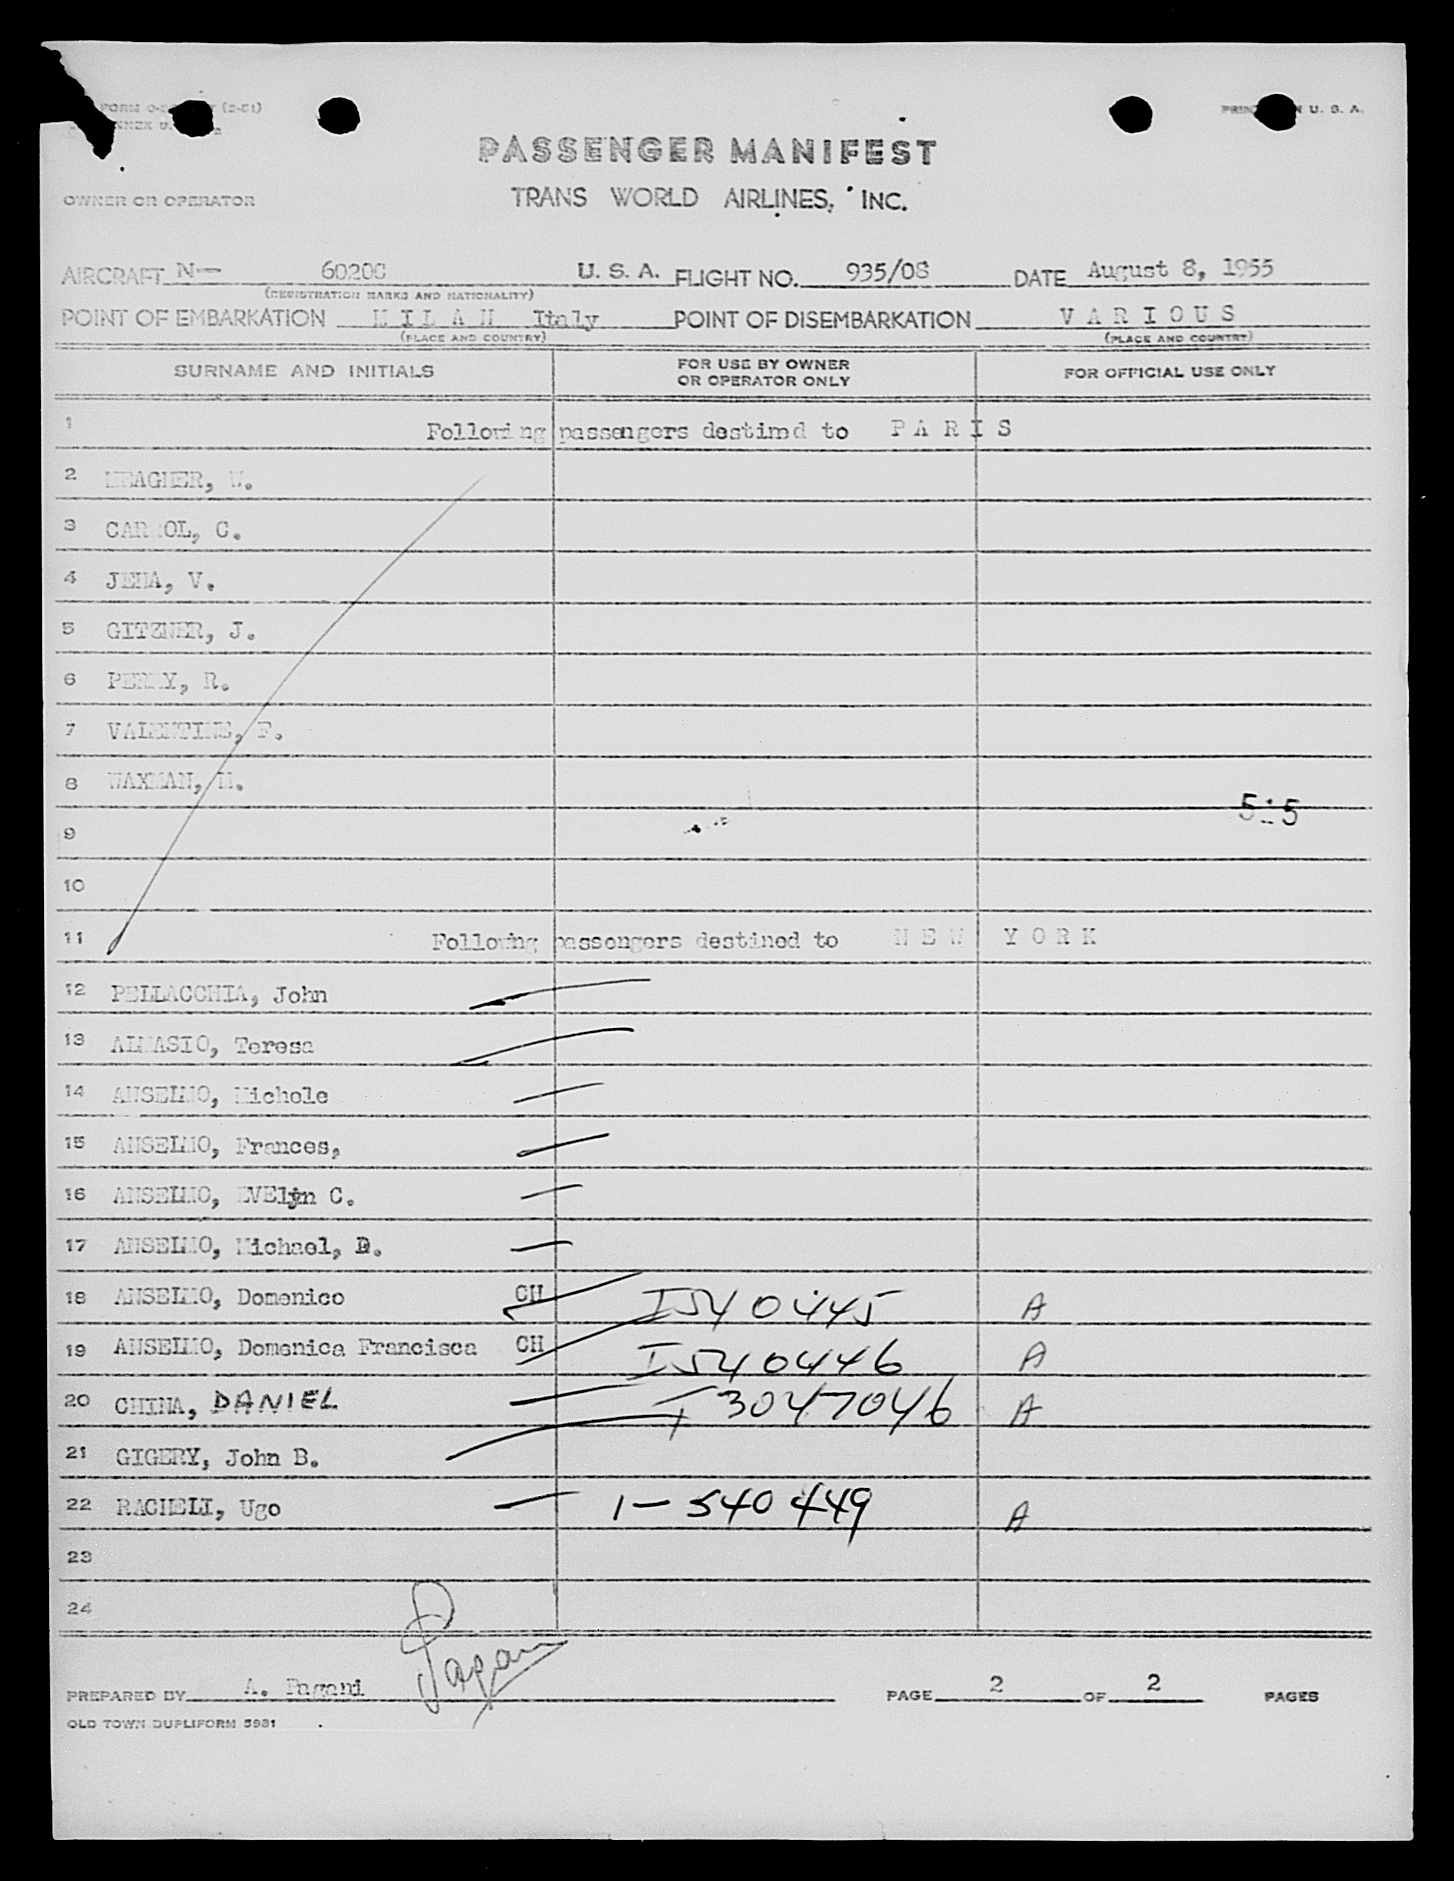 FORM (2-51)
PRINTED IN U. S. A.
PASSENGER MANIFEST
OWNER OR OPERATOR
TRANS WORLD AIRLINES, INC.
AIRCRAFT N— 6020C U. S. A. FLIGHT NO. 935/08 DATE August 8, 1955
(REGISTRATION MARKS AND NATIONALITY)
POINT OF EMBARKATION M I L A N Italy POINT OF DISEMBARKATION V A R I O U S
(PLACE AND COUNTRY) (PLACE AND COUNTRY)
SURNAME AND INITIALS FOR USE BY OWNER OR OPERATOR ONLY FOR OFFICIAL USE ONLY
1 Following passengers destined to P A R I S
2 MEAGHER, W.
3 CARROL, C.
4 JENA, V.
5 GITZNER, J.
6 PERRY, R.
7 VALENTINE, F.
8 WAXMAN, M.
9
10
11 Following passengers destined to N E W Y O R K
12 PELLACCHIA, John
13 ALMASIO, Teresa
14 ANSELMO, Michele
15 ANSELMO, Frances,
16 ANSELMO, EVElyn C.
17 ANSELMO, Michael, D.
18 ANSELMO, Domenico CH I540445 A
19 ANSELMO, Domenica Francisca CH I540446 A
20 CHINA, DANIEL T 3047046 A
21 GIGERY, John B.
22 RACHELI, Ugo 1-540449 A
23
24
PREPARED BY A. Pagani Pagani PAGE 2 OF 2 PAGES
OLD TOWN DUPLIFORM 5931